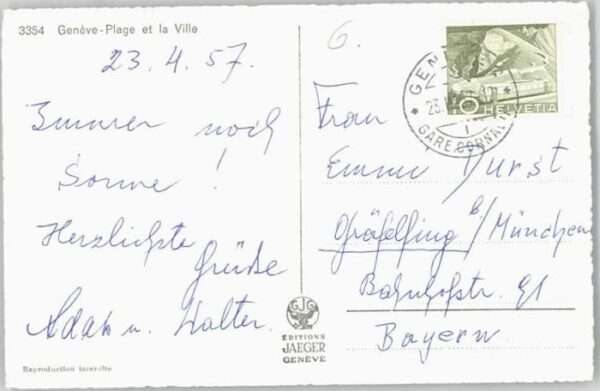 3354 Genève-Plage et la Ville
23.4.57.
Immer noch
Sonne!
Herzlichste
Grüße
u. Walter.
Reproduction interdite
EDITIONS
JAEGER
GENÈVE
6.
HELVETIA
GARE CORNAVIN
Frau
Emma Durst
Gräfelfing b/München
Bahnhofstr. 91
Bayern